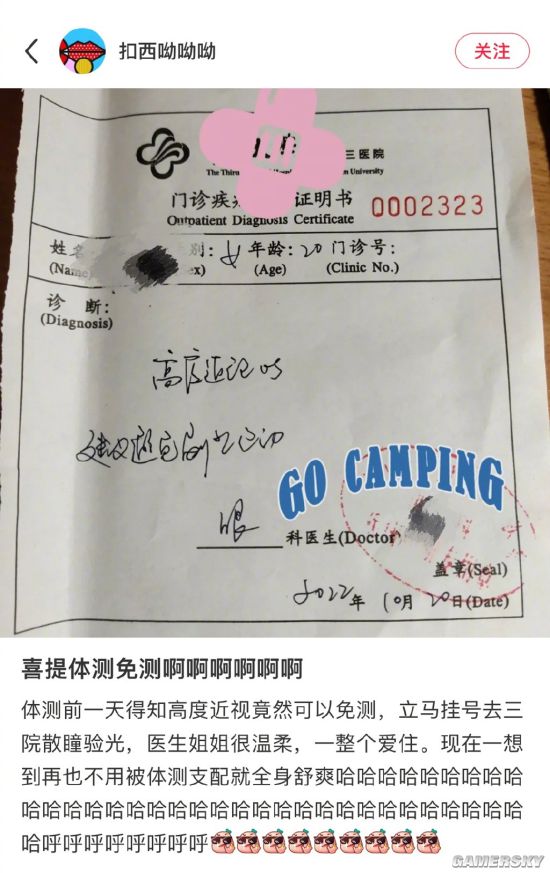 扣西呦呦呦
关注
三医院
The Thir
n University
门诊疾
证明书
Outpatient Diagnosis Certificate
0002323
姓名
别:女 年龄:20 门诊号:
(Name)
ex)
(Age)
(Clinic No.)
诊 断:
(Diagnosis)
高度近视 os
建议避免剧烈运动
GO CAMPING
眼 科医生(Doctor
盖章(Seal)
2022年 10月 20日(Date)
喜提体测免测啊啊啊啊啊啊
体测前一天得知高度近视竟然可以免测，立马挂号去三
院散瞳验光，医生姐姐很温柔，一整个爱住。现在一想
到再也不用被体测支配就全身舒爽哈哈哈哈哈哈哈哈哈
哈哈哈哈哈哈哈哈哈哈哈哈哈哈哈哈哈哈哈哈哈哈哈哈
哈呼呼呼呼呼呼呼呼
GAMERSKY